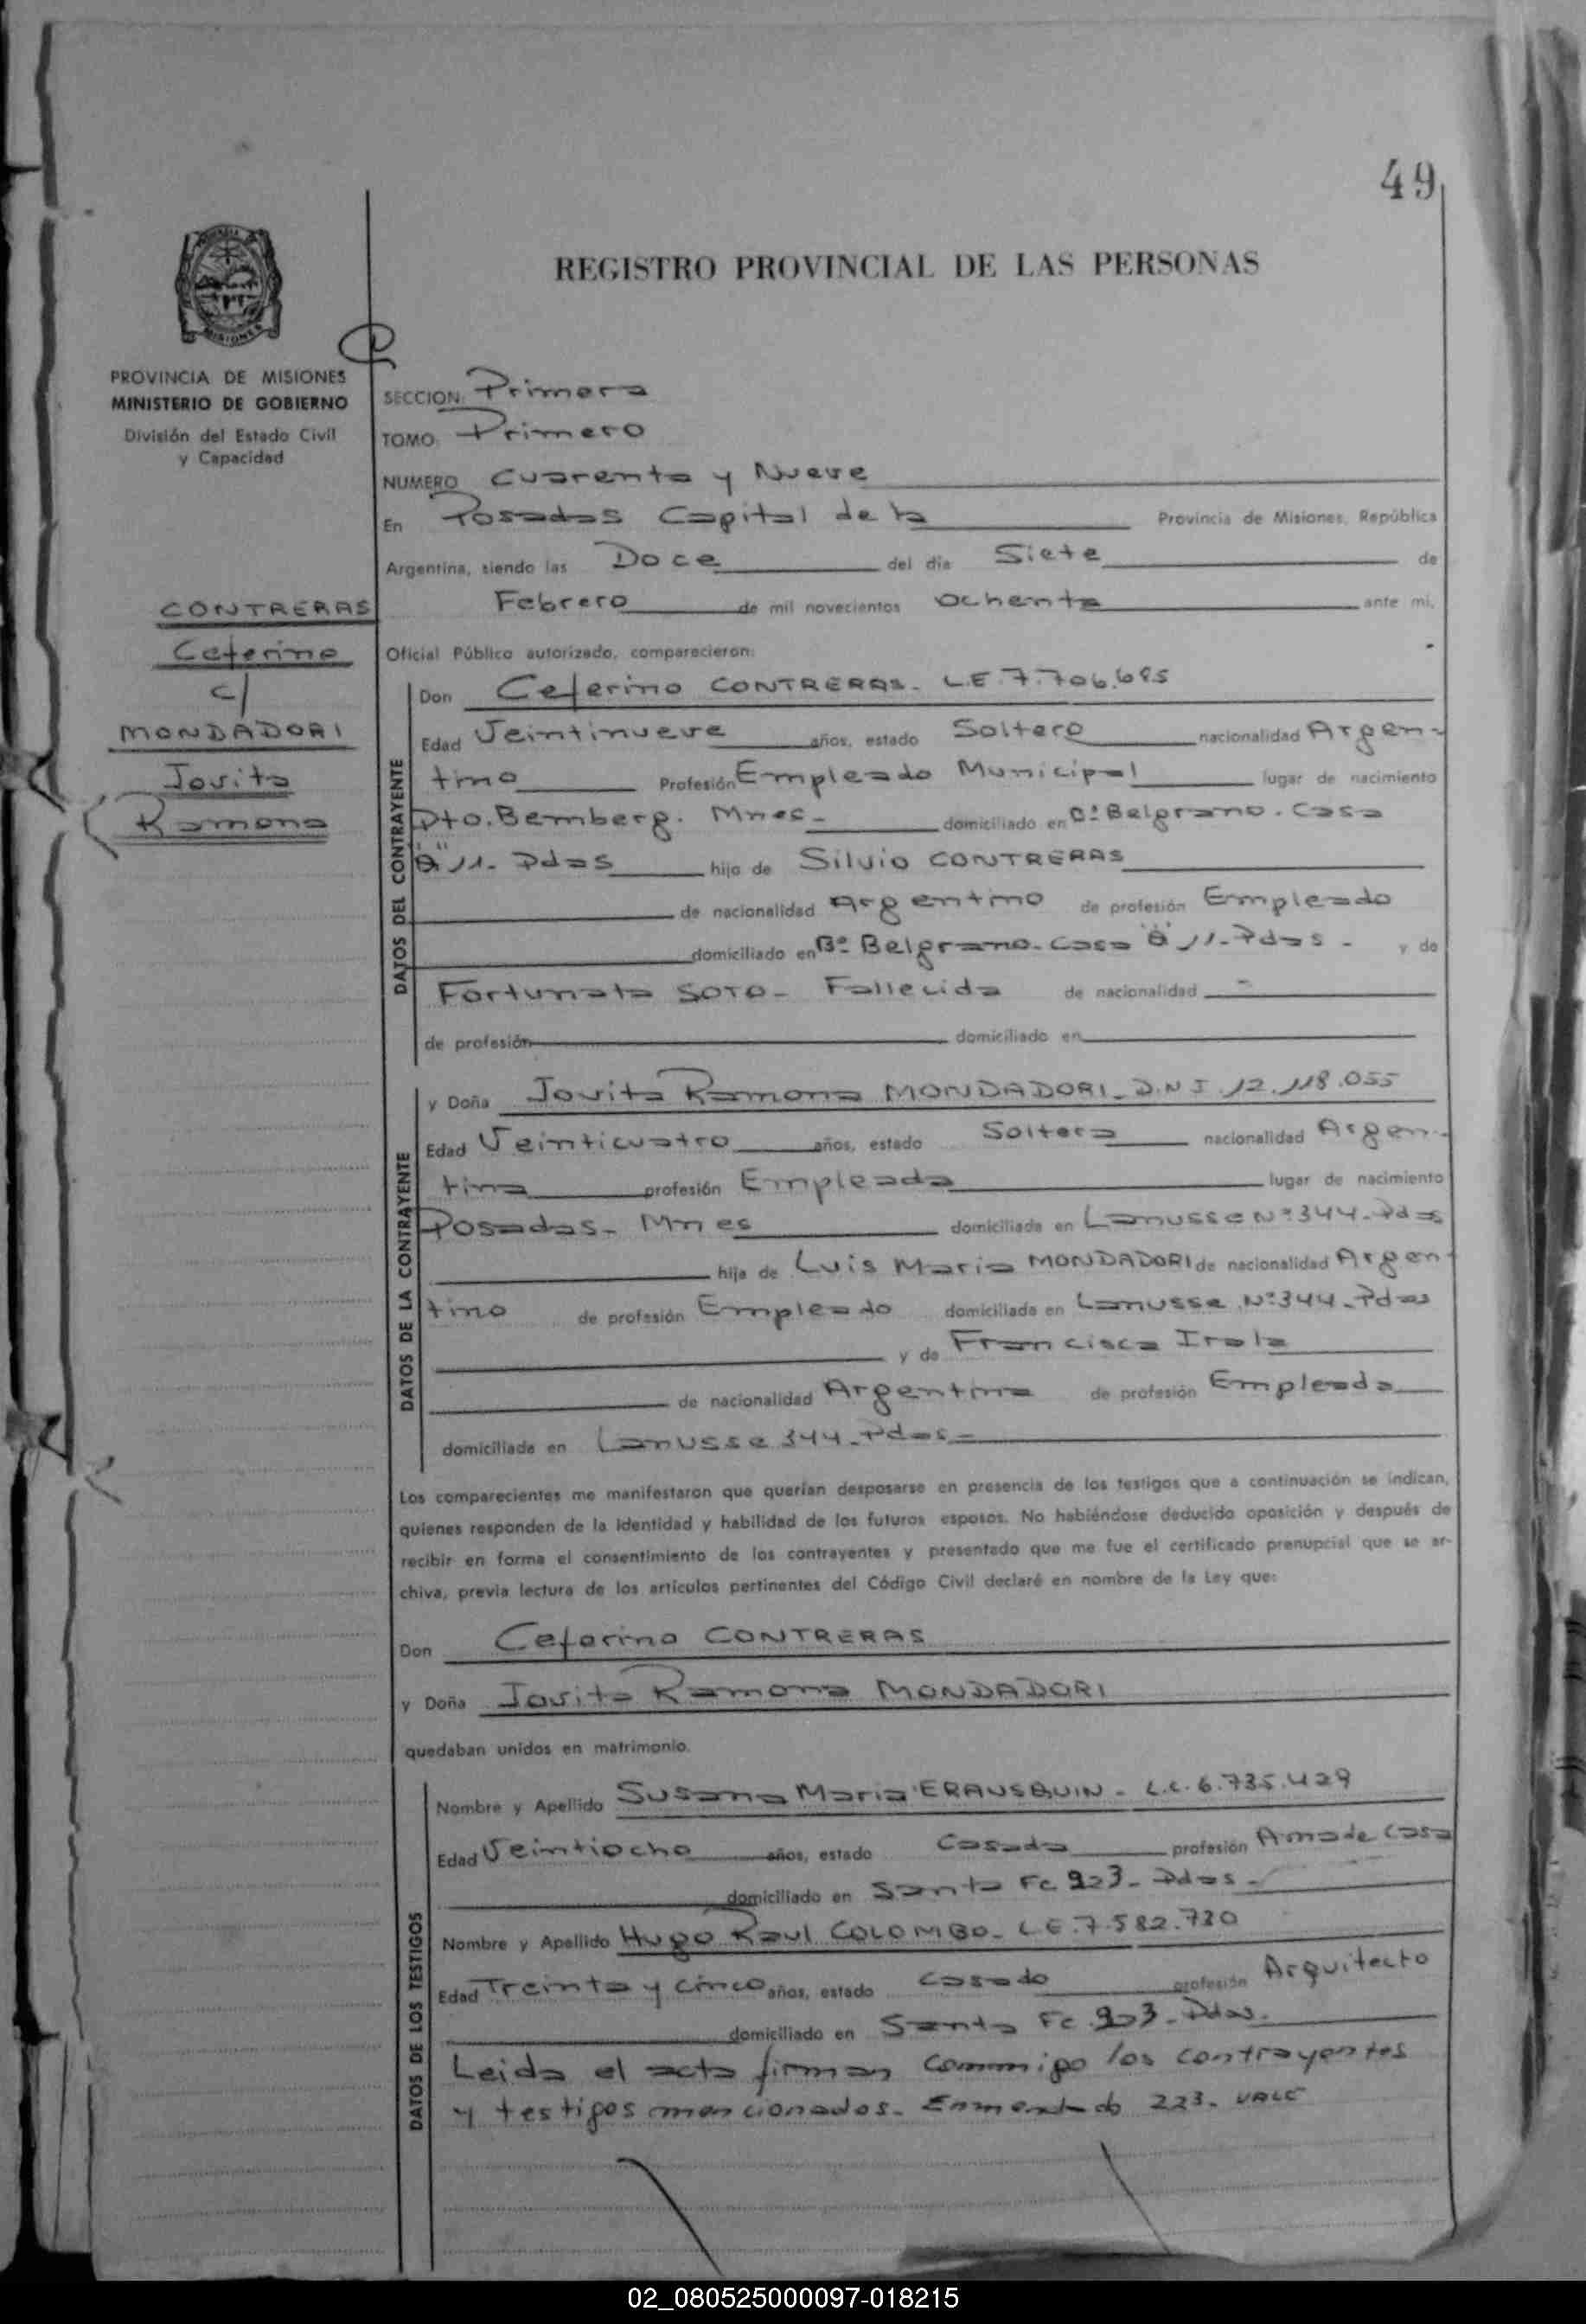 49
REGISTRO PROVINCIAL DE LAS PERSONAS
MISIONES
PROVINCIA DE MISIONES
MINISTERIO DE GOBIERNO
División del Estado Civil
y Capacidad
CONTRERAS
Ceferino
c/
MONDADORI
Jovita
Ramona
SECCION: Primera
TOMO: Primero
NUMERO Cuarenta y Nueve
En Posadas Capital de la Provincia de Misiones, República
Argentina, siendo las Doce del día Siete de
Febrero de mil novecientos ochenta ante mí,
Oficial Público autorizado, comparecieron:
DATOS DEL CONTRAYENTE
Don Ceferino CONTRERAS - L.E. 7.706.685
Edad Veintinueve años, estado Soltero nacionalidad Argen-
tino Profesión Empleado Municipal lugar de nacimiento
Pto. Bemberg. Mnes- domiciliado en Bº Belgrano. Casa
11- Pdas hijo de Silvio CONTRERAS
de nacionalidad Argentino de profesión Empleado
domiciliado en Bº Belgrano- Casa 11- Pdas - y de
Fortunata SOTO- Fallecida de nacionalidad -
de profesión domiciliado en
DATOS DE LA CONTRAYENTE
y Doña Jovita Ramona MONDADORI- D.N.I. 12.118.055
Edad Veinticuatro años, estado Soltera nacionalidad Argen-
tina profesión Empleada lugar de nacimiento
Posadas- Mnes domiciliada en Lanusse Nº 344- Pdas
hija de Luis Maria MONDADORI de nacionalidad Argen-
tino de profesión Empleado domiciliada en Lanusse Nº 344- Pdas
y de Francisca Irala
de nacionalidad Argentina de profesión Empleada
domiciliada en Lanusse 344- Pdas-
Los comparecientes me manifestaron que querían desposarse en presencia de los testigos que a continuación se indican,
quienes responden de la identidad y habilidad de los futuros esposos. No habiéndose deducido oposición y después de
recibir en forma el consentimiento de los contrayentes y presentado que me fue el certificado prenupcial que se ar-
chiva, previa lectura de los artículos pertinentes del Código Civil declaré en nombre de la Ley que:
Don Ceferino CONTRERAS
y Doña Jovita Ramona MONDADORI
quedaban unidos en matrimonio.
DATOS DE LOS TESTIGOS
Nombre y Apellido Susana Maria ERAUSQUIN - L.C. 6.735.429
Edad Veintiocho años, estado Casada profesión Ama de Casa
domiciliado en Santa Fe 223- Pdas-
Nombre y Apellido Hugo Raul COLOMBO- L.E. 7.582.720
Edad Treinta y cinco años, estado Casado profesión Arquitecto
domiciliado en Santa Fe 223- Pdas.
Leida el acta firman conmigo los contrayentes
y testigos mencionados- Enmendado 223- VALE
02_080525000097-018215